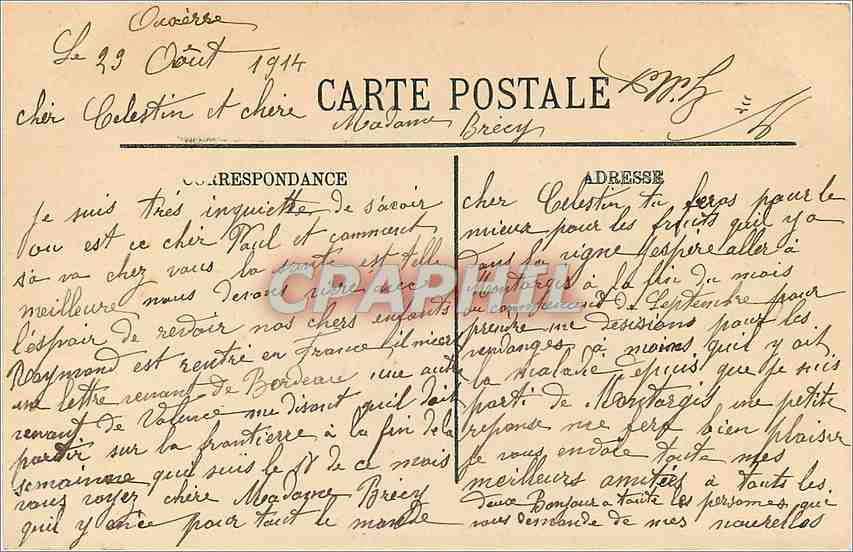 Le 23 Août 1914
CARTE POSTALE
cher Celestin et chère
Madame Brécy
CORRESPONDANCE
Je suis très inquiette de s'avoir
ou est ce cher Paul et comment
s'a va chez vous la santé est telle
meilleure nous devons vivre avec
l'éspoir de revoir nos chers enfants
Raymond est rentré en France il
une lettre venant de Bordeau une autre
venant de Valence me disant qu'il doit
partir sur la frontierre à la fin de la
semainne que suis le 18 de ce mois
vous voyez chère Madame Brécy
qu'il y en a pour tout le monde
ADRESSE
cher Celestin tu feras pour le
mieux pour les fruits qu'il y a
dans la vigne j'espere aller à
Montargis à la fin du mois
ou commencent de Septembre pour
prendre une desisions pour les
vendanges à moins qu'il y ait
la maladie depuis que je suis
parti de Montargis une petite
reponse me fera bien plaisir
je vous envoie toute mes
meilleurs amitiés à touts les
deux Bonjour a toute les personnes qui
vous demande de mes nouvelles
CPAPHIL